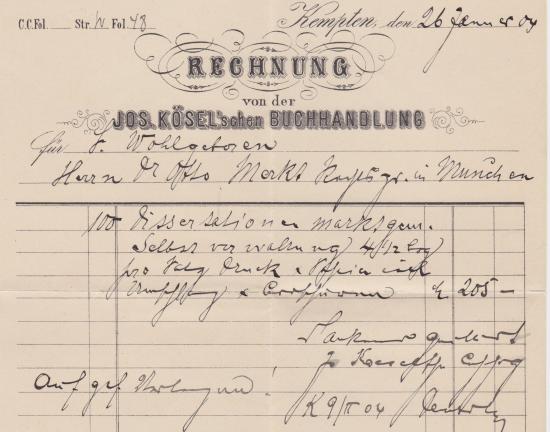 C.C.Fol. Str. W Fol. 48
Kempten, den 26 Jänner 04
RECHNUNG
von der
JOS. KÖSEL'schen BUCHHANDLUNG
für S. Wohlgeboren
Herrn Dr Otto Merkt in München
100 Dissertationen marktgem.
Selbstverwaltung 4 1/2 Bog
pro Druck
Umschlag & Broschieren 205 –
Jos. Koesel'sche
Auf gef. Verlangen!
K 9/II 04